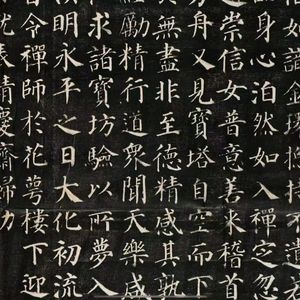 身心泊然如入禪定忽
崇信女普意善来稽首
舟又見寶塔自空而下
無盡非至德精感其孰
勵精行道眾聞天樂咸
求諸寶坊驗以所夢入
明永平之日大化初流
令禪師於花萼樓下迎
表請慶齋歸功